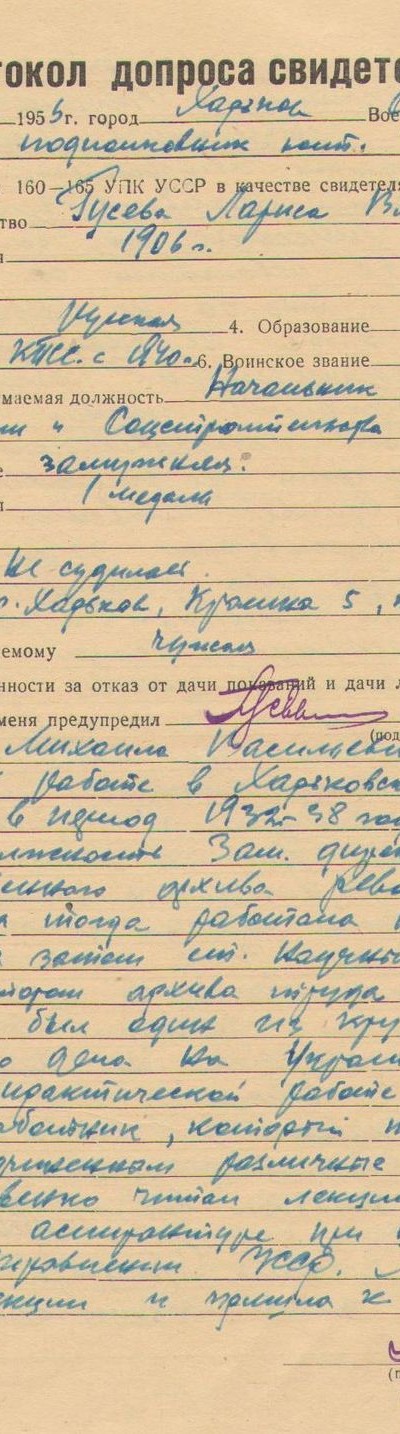 токол допроса свидете
195 г. город Харьков Вое
подполковник юст.
160—165 УПК УССР в качестве свидетеля
тво Гусева Лариса В
1906 г.
Русская 4. Образование
КПСС с 1940 г. 6. Воинское звание
маемая должность Начальник
и Соцстроительства
замужняя.
1 медаль
Не судилась
г. Харьков, 5,
емому чужая
нности за отказ от дачи показаний и дачи л
меня предупредил
(под
Михаила Васильеви
работе в Харьковско
в период 1932-38 го
олжность Зам. дирек
енного архива Рево
тогда работала
затем ст. научны
тором архива труда
был один из кру
о дела на Украи
работе
аботник, который
дчиненным различные
венно читал лекции
аспирантуре при
правлении УССР.
екции и пришла к
(п